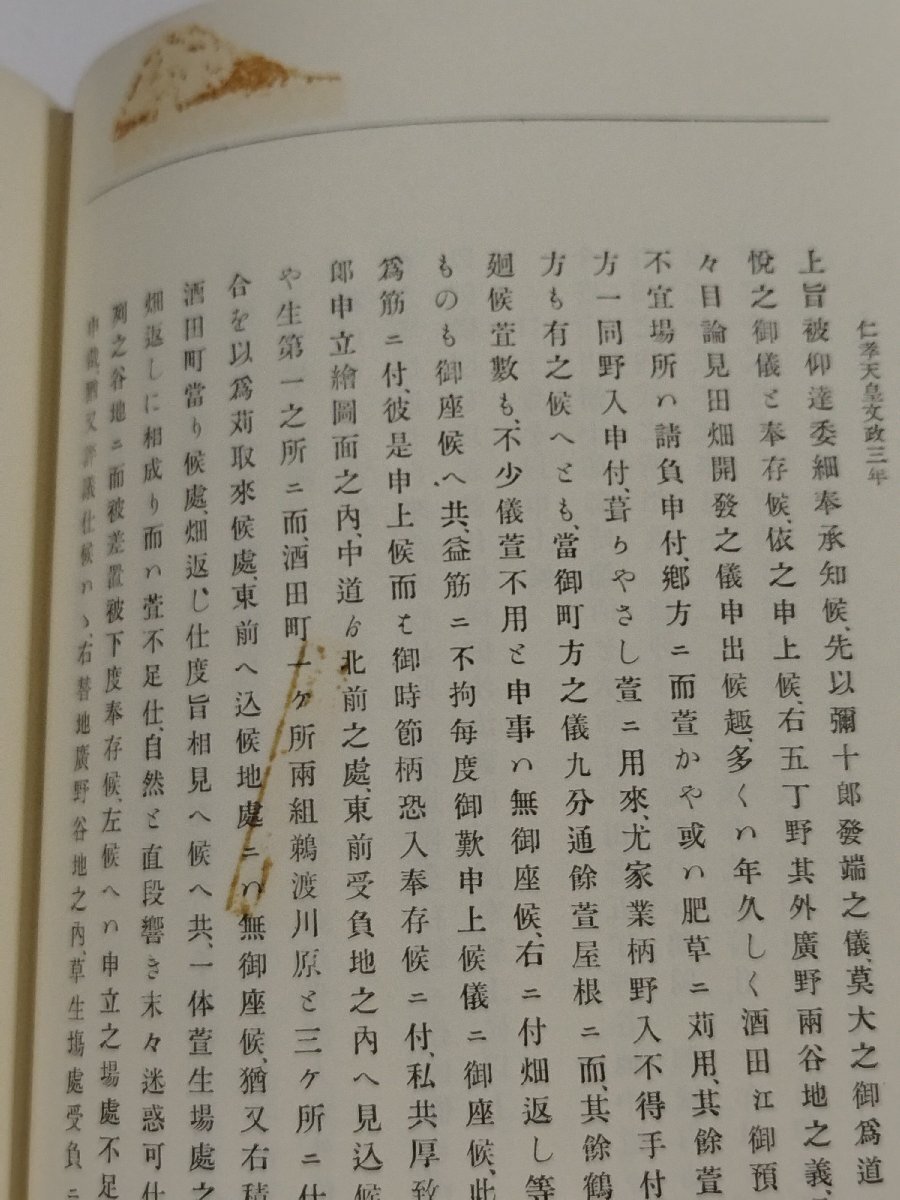 仁孝天皇文政三年
上旨被仰達委細奉承知候、先以彌十郎發端之儀、莫大之御爲道
悅之御儀と奉存候、依之申上候、右五丁野其外廣野兩谷地之義
々目論見田畑開發之儀申出候趣、多くハ年久しく酒田江御預
不宜場所ハ請負申付、鄕方ニ而萱かや或ハ肥草ニ苅用、其餘萱
方一同野入申付、葺りやさし萱ニ用來、尤家業柄野入不得手付
方も有之候へとも、當御町方之儀九分通餘萱屋根ニ而、其餘鶴
廻候萱數も、不少儀萱不用と申事ハ無御座候、右ニ付畑返し等
ものも御座候へ共、益筋ニ不拘每度御歎申上候儀ニ御座候、此
爲筋ニ付、彼是申上候而も御時節柄恐入奉存候ニ付、私共厚致
郎申立繪圖面之內、中道ゟ北前之處、東前受負地之內へ見込候
や生第一之所ニ而、酒田町一ケ所兩組鵜渡川原と三ケ所ニ仕
合を以爲苅取來候處、東前へ込候地處ニハ無御座候、猶又右積
酒田町當り候處、畑返し仕度旨相見へ候へ共、一体萱生場處之
畑返しに相成り而ハ萱不足仕、自然と直段響き末々迷惑可仕
剡之谷地ニ而被差置被下度奉存候、左候へハ申立之場處不足
評議仕候ハヽ、右替地廣野谷地之內、草生塲處受負ニ